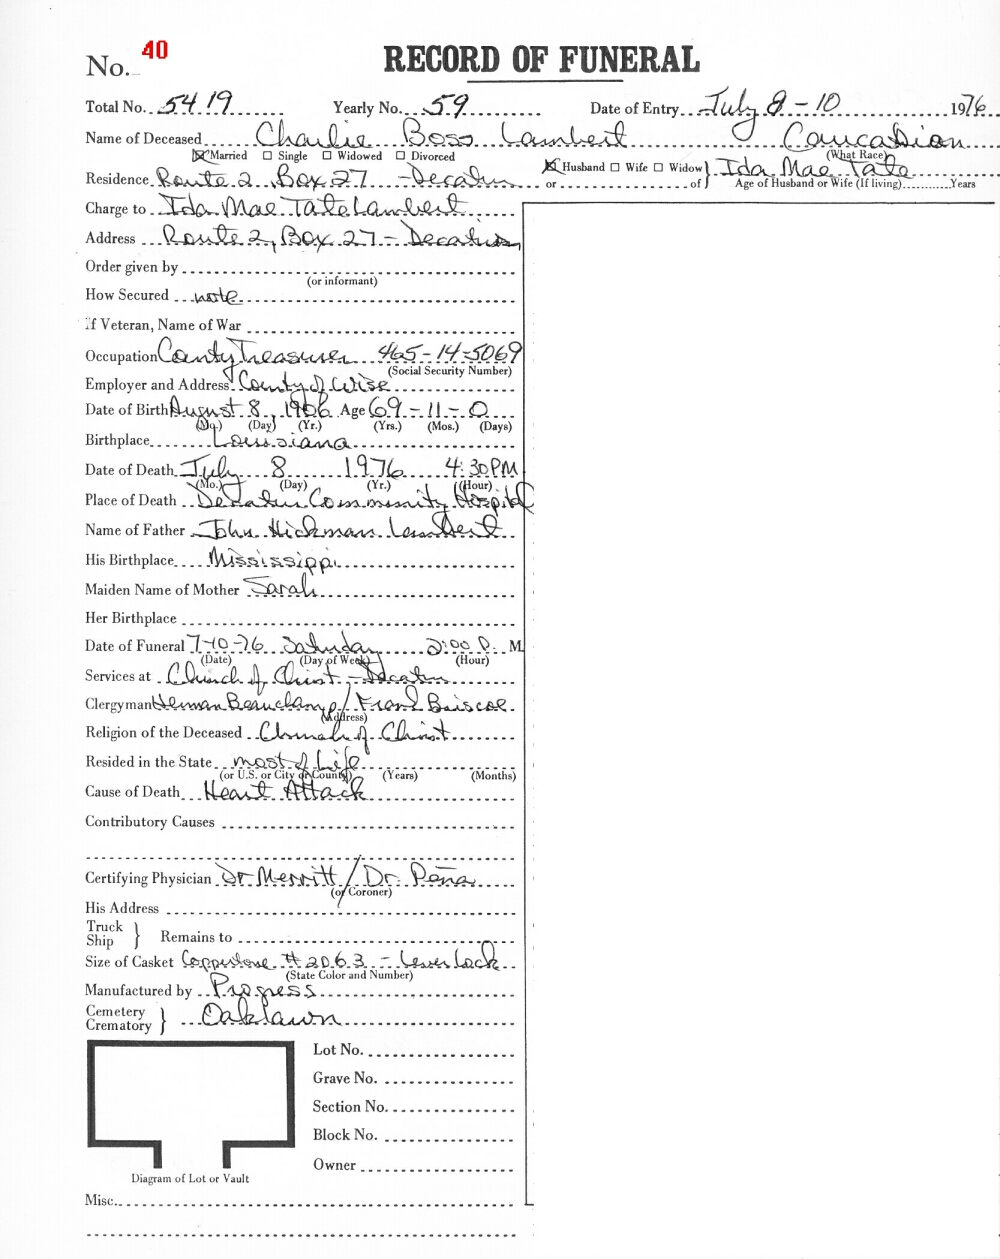 No. 40 RECORD OF FUNERAL
Total No. 5419 Yearly No. 59 Date of Entry July 8-10 1976
Name of Deceased Charlie Boss Lambert Caucasian
☒ Married ☐ Single ☐ Widowed ☐ Divorced (What Race)
Residence Route 2, Box 27 - Decatur ☒ Husband ☐ Wife ☐ Widow or of } Ida Mae Tate
Age of Husband or Wife (If living) Years
Charge to Ida Mae Tate Lambert
Address Route 2, Box 27 - Decatur
Order given by
(or informant)
How Secured note
If Veteran, Name of War
Occupation County Treasurer 465-14-5069
(Social Security Number)
Employer and Address County of Wise
Date of Birth August 8, 1906 Age 69-11-0
(Mo.) (Day) (Yr.) (Yrs.) (Mos.) (Days)
Birthplace Louisiana
Date of Death July 8 1976 4:30 PM
(Mo.) (Day) (Yr.) (Hour)
Place of Death Decatur Community Hospital
Name of Father John Hickman Lambert
His Birthplace Mississippi
Maiden Name of Mother Sarah
Her Birthplace
Date of Funeral 7-10-76 Saturday 2:00 P. M.
(Date) (Day of Week) (Hour)
Services at Church of Christ - Decatur
Clergyman Herman Beauchamp / Frank Briscoe
(Address)
Religion of the Deceased Church of Christ
Resided in the State most of Life
(or U.S. or City or County) (Years) (Months)
Cause of Death Heart Attack
Contributory Causes
Certifying Physician Dr Merritt / Dr. Peña
(or Coroner)
His Address
Truck
Ship } Remains to
Size of Casket Coppertone #2063 - Lever Lock
(State Color and Number)
Manufactured by Progress
Cemetery
Crematory } Oaklawn
Lot No.
Grave No.
Section No.
Block No.
Owner
Diagram of Lot or Vault
Misc.